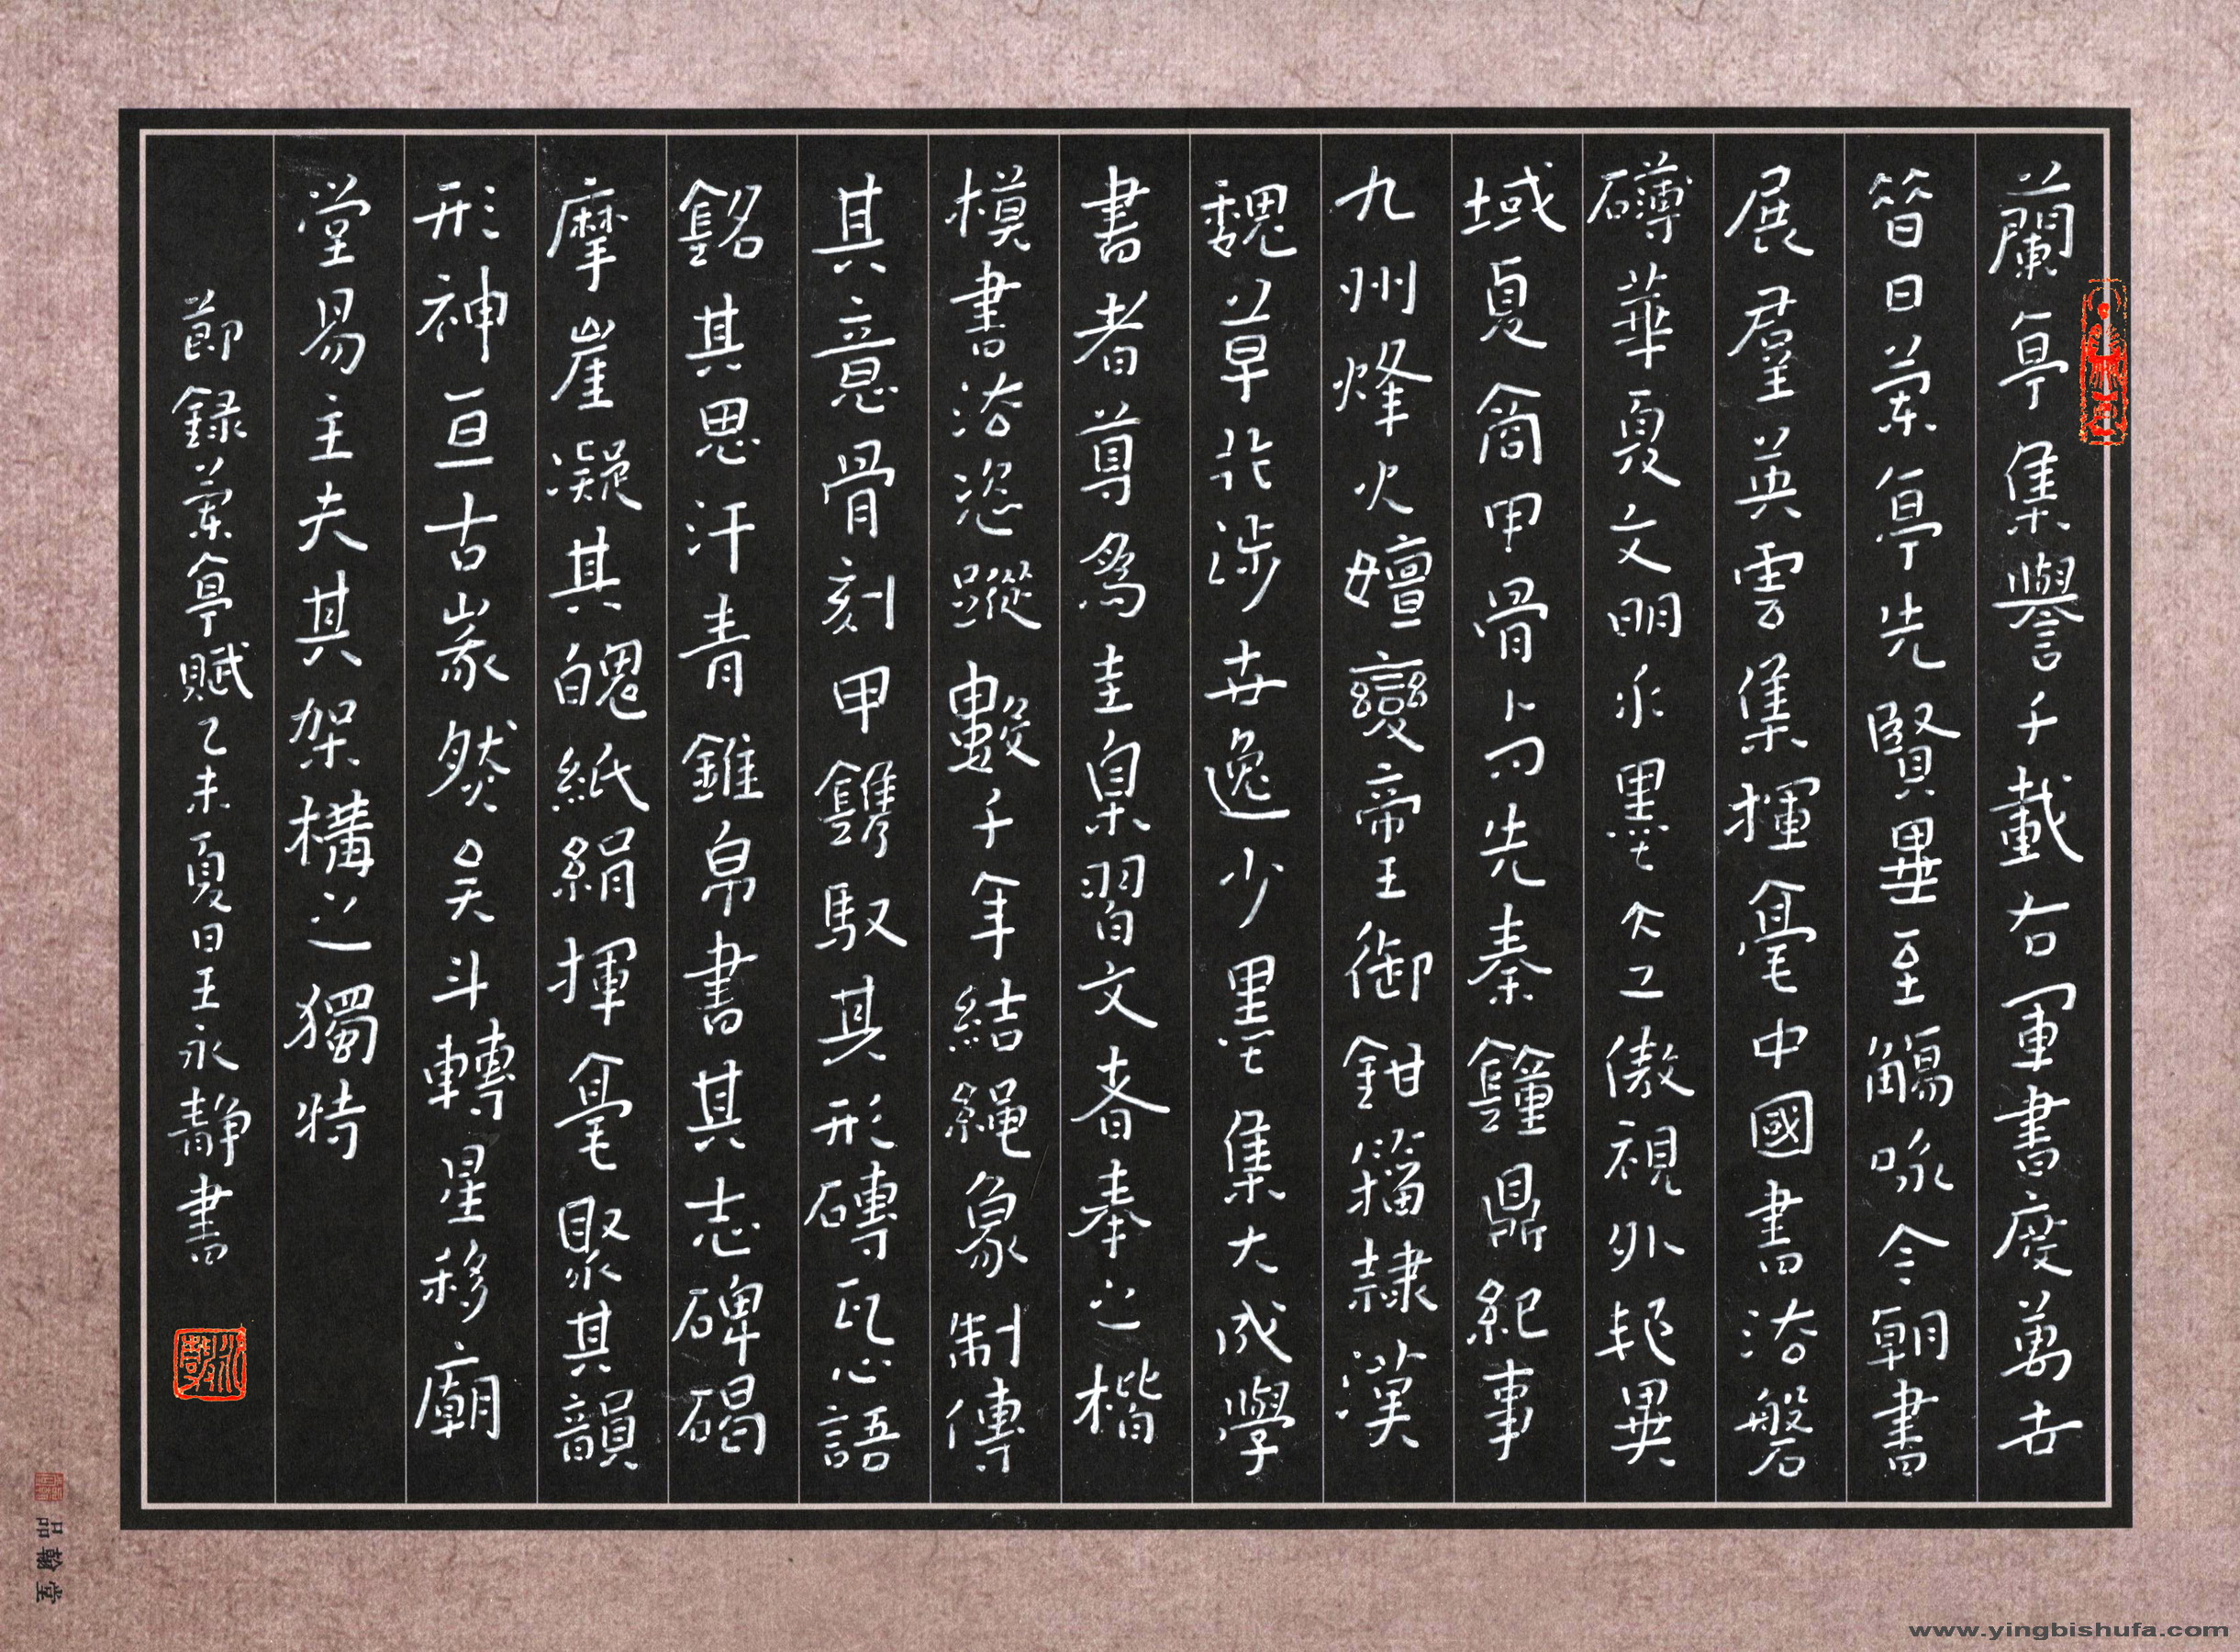 蘭亭集譽千載右軍書度萬世
昝日蘭亭先賢畢至觴咏今朝書
展群英雲集揮毫中國書法磐
礴華夏文明水墨大工傲視外邦異
域夏商甲骨卜問先秦鐘鼎紀事
九州烽火嬗變帝王御鉗籀隸漢
魏草行涉世逸少墨集大成學
書者尊為圭臬習文者奉之楷
模書法恣蹤數千年結繩象制傳
其意骨刻甲鐫馭其形磚瓦心語
銘其思汗青錐帛書其志碑碣
摩崖凝其魄紙絹揮毫聚其韻
形神亘古蒙然昊斗轉星移廟
堂易主夫其架構之獨特
節錄蘭亭賦乙未夏日王永靜書
品翰堂
www.yingbishufa.com